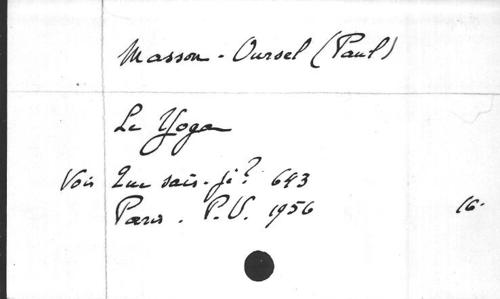 Masson-Oursel (Paul)
Le Yoga
Voir Que sais-je? 643
Paris. P.U. 1956 16-